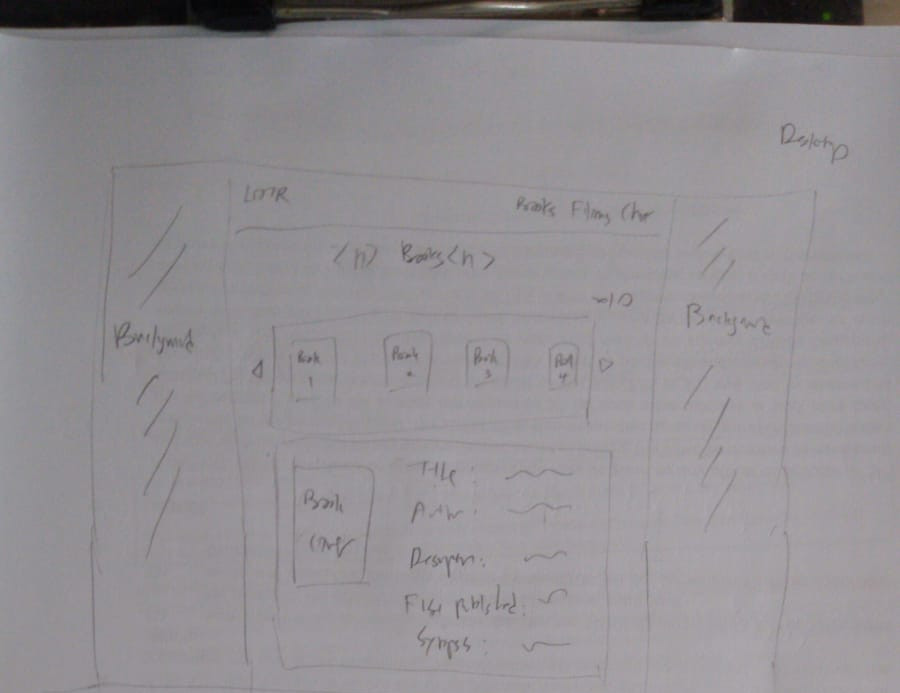 Desktop
LOTR
Books Films Char
<n> Books <n>
n/D
Background
Background
Book 1
Book 2
Book 3
Book 4
Book Cover
Title :
Author :
Description :
First published :
Synopsis :